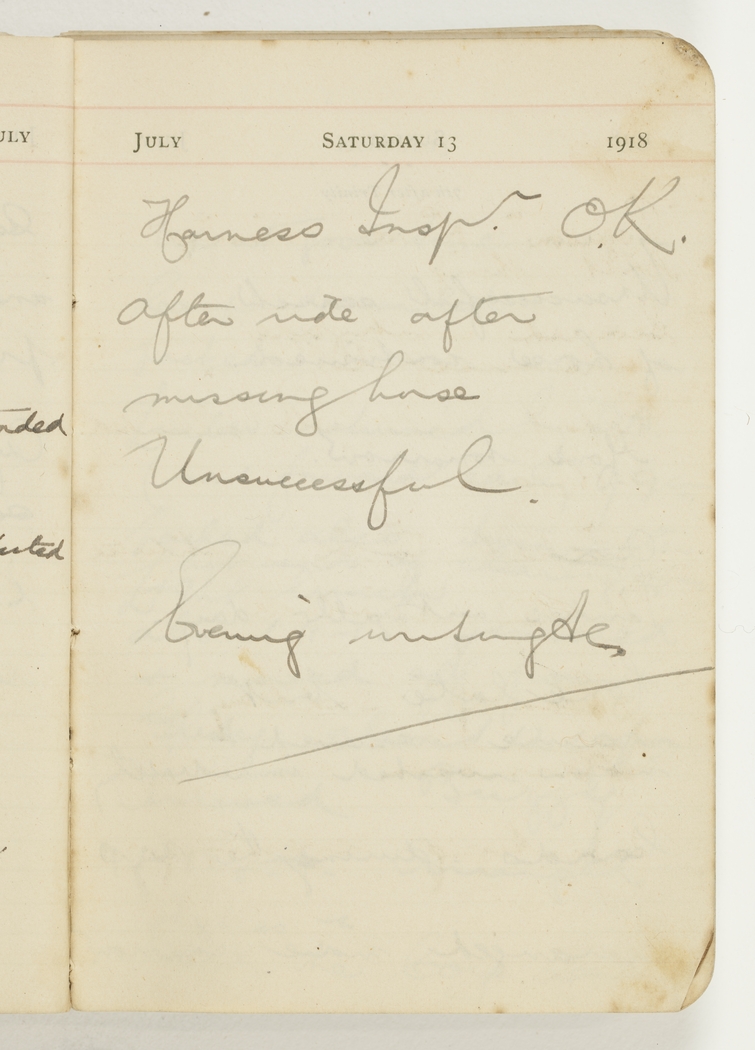 ULY
JULY SATURDAY 13 1918
Harness Insp. O.K.
After ride after
missing horse
Unsuccessful.
Evening writing &c.
nded